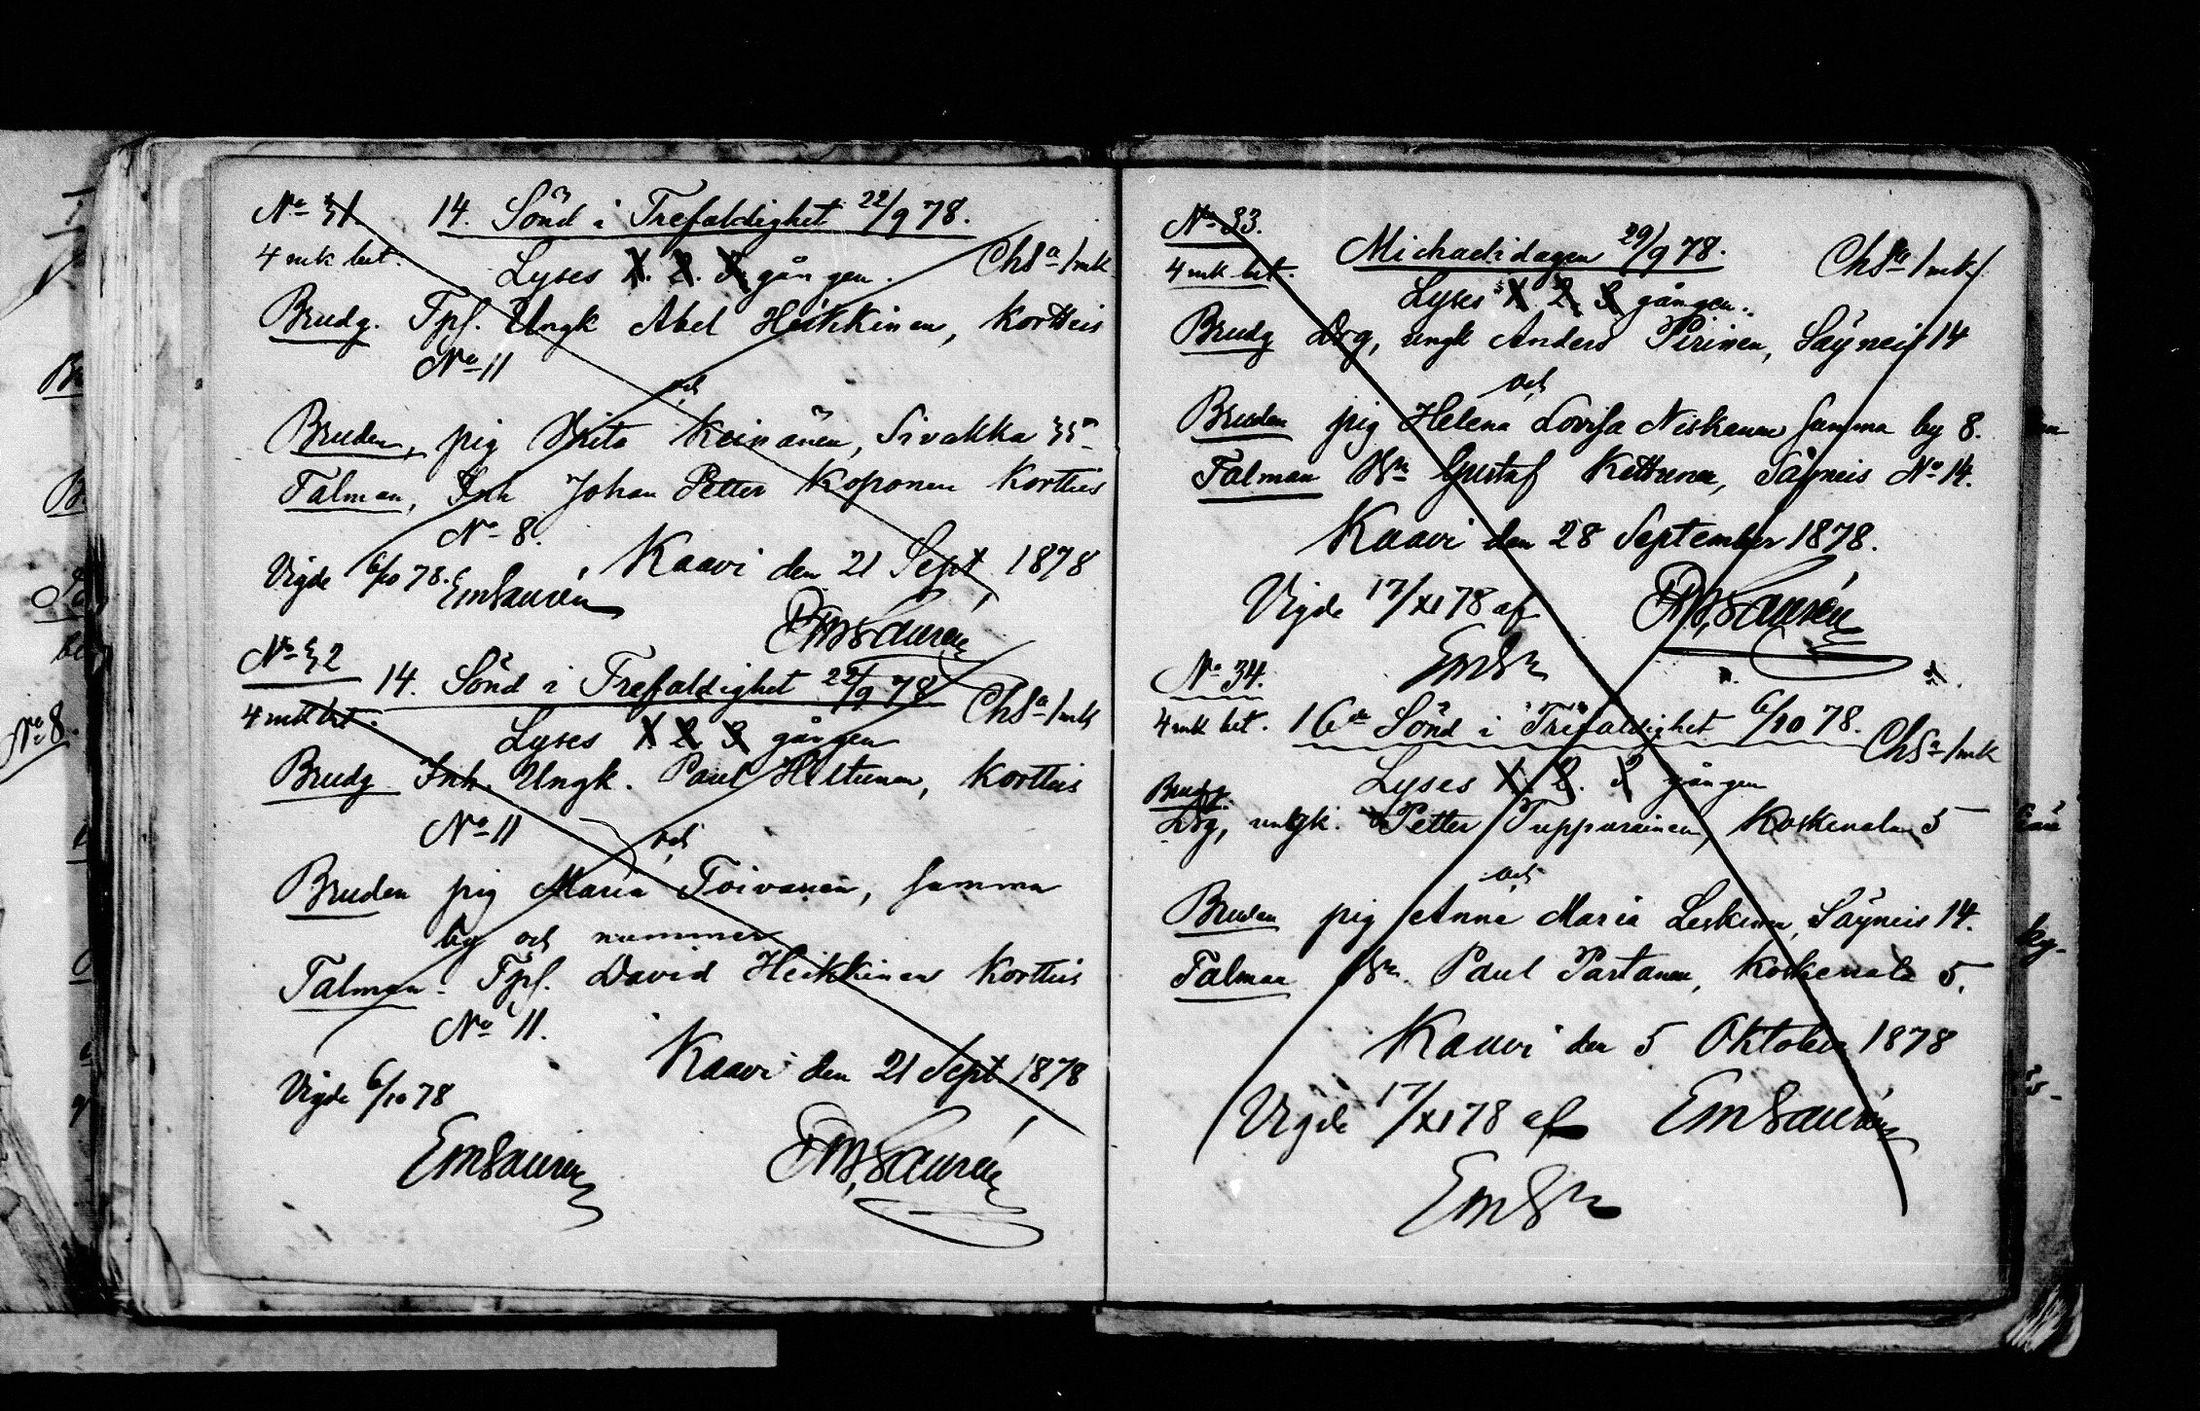 No 31. 14. Sönd i Trefaldighet 22/9 78.
4 mk bet. Lyses 1. 2. 3. gången. ChSa 1 mk
Brudg. Tpf. Ungk Abel Heikkinen, Kortteis
No 11
och
Bruden, pig Brita Keinänen, Sivakka 35
Talman, Inh Johan Petter Koponen Kortteis
No 8.
Kaavi den 21 Sept 1878
Vigde 6/10 78. EmSaurén
EmSaurén
No 32
14. Sönd i Trefaldighet 22/9 78
4 mk bet. Lyses 1 2 3 gången ChSa 1 mk
Brudg Inh. Ungk. Paul Hiltunen, Kortteis
No 11
och
Bruden pig Maria Toivanen, samma
by och nummer
Talman. Tpf. David Heikkinen Kortteis
No 11.
Kaavi den 21 Sept 1878
Vigde 6/10 78
EmSaurén EmSaurén
No 33.
Michaelidagen 29/9 78. ChSa 1 mk
4 mk bet. Lyses 1 2 3 gången.
Brudg Drg, ungk Anders Pirinen, Säyneis 14
och
Bruden pig Helena Lovisa Niskanen samma by 8.
Talman Bn Gustaf Kettunen, Säyneis No 14.
Kaavi den 28 September 1878.
Vigde 17/XI 78 af EmSaurén
EmSn
No 34.
4 mk bet. 16de Sönd i Trefaldighet 6/10 78. ChSa 1 mk
Lyses 1. 2. 3 gången
Brudg.
Drg, ungk. Petter Tuppurainen, Koskenala 5
och
Bruden pig Anna Maria Leskinen, Säyneis 14.
Talman Bn. Paul Partanen, Koskenala 5.
Kaavi den 5 Oktober 1878
Vigde 17/XI 78 af EmSaurén
EmSn
No 8.